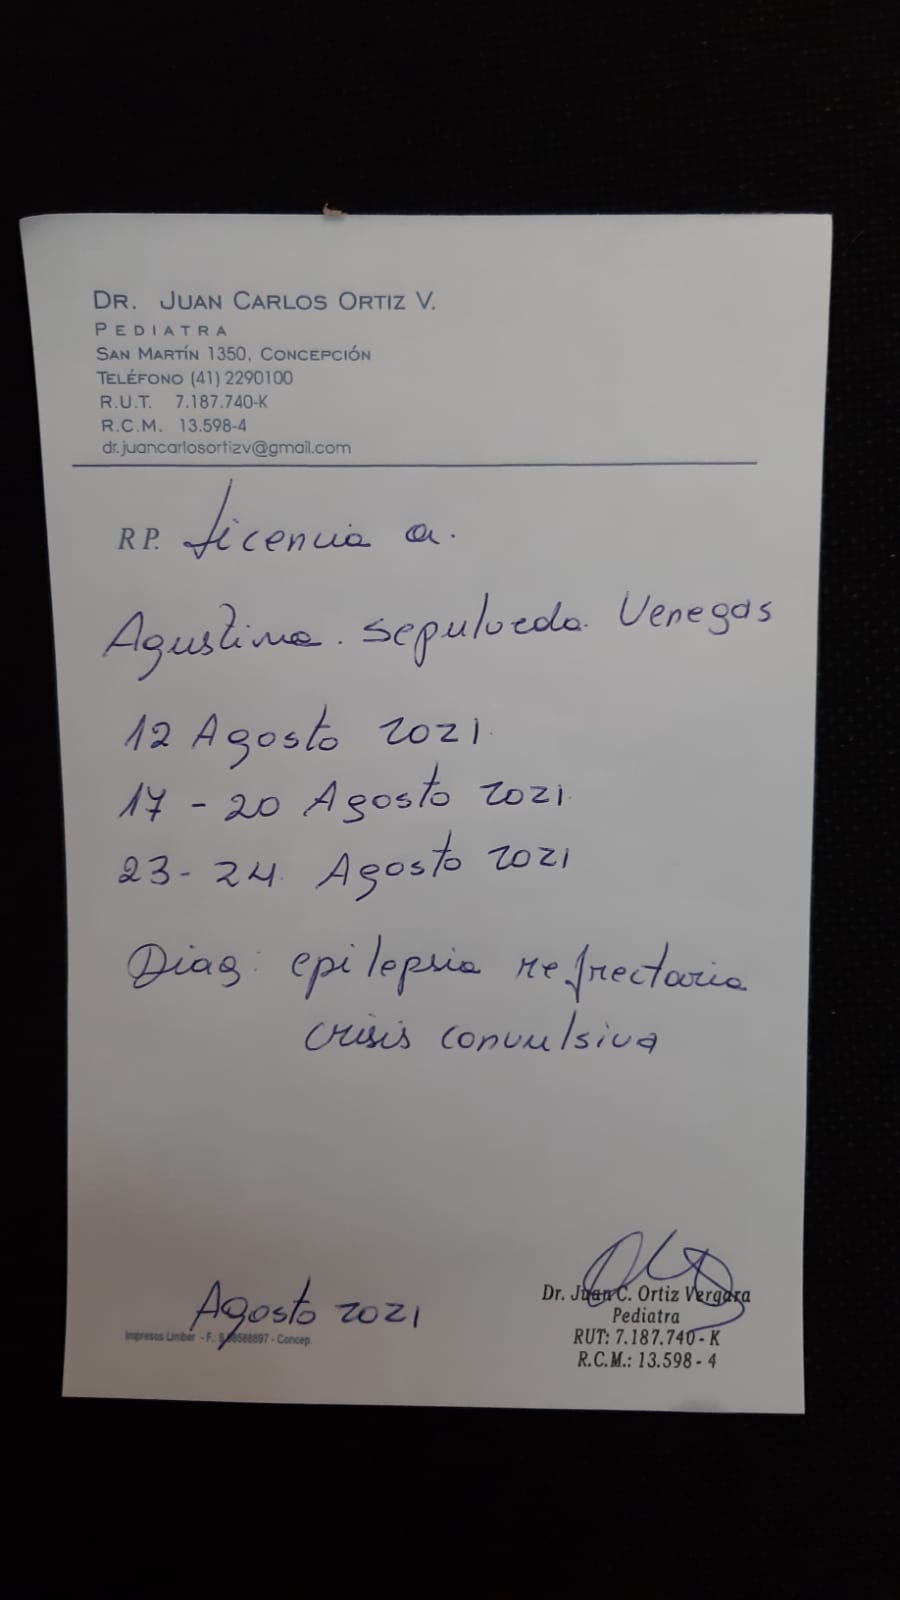 DR. JUAN CARLOS ORTIZ V.
PEDIATRA
SAN MARTÍN 1350, CONCEPCIÓN
TELÉFONO (41) 2290100
R.U.T. 7.187.740-K
R.C.M. 13.598-4
dr.juancarlosortizv@gmail.com
RP. Licencia a.
Agustina. Sepulveda. Venegas
12 Agosto 2021.
17 - 20 Agosto 2021.
23 - 24. Agosto 2021
Diag: epilepsia refractaria
crisis convulsiva
Agosto 2021
Impresos Limber - F.: - Concep.
Dr. Juan C. Ortiz Vergara
Pediatra
RUT: 7.187.740 - K
R.C.M.: 13.598 - 4